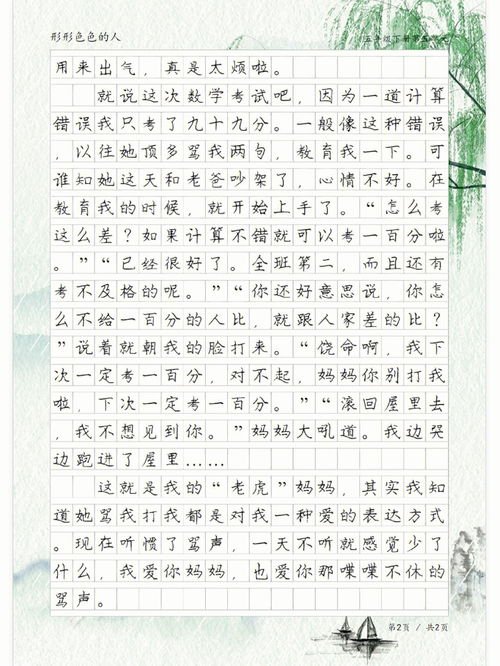 形形色色的人
五年级下册第五单元
用来出气，真是太烦啦。
就说这次数学考试吧，因为一道计算
错误我只考了九十九分。一般像这种错误
，以往她顶多骂我两句，教育我一下。可
谁知她这天和老爸吵架了，心情不好。在
教育我的时候，就开始上手了。“怎么考
这么差？如果计算不错就可以考一百分啦
。”“已经很好了。全班第二，而且还有
考不及格的呢。”“你还好意思说，你怎
么不给一百分的人比，就跟人家差的比？
”说着就朝我的脸打来。“饶命啊，我下
次一定考一百分，对不起，妈妈你别打我
啦，下次一定考一百分。”“滚回屋里去
，我不想见到你。”妈妈大吼道。我边哭
边跑进了屋里……
这就是我的“老虎”妈妈，其实我知
道她骂我打我都是对我一种爱的表达方式
。现在听惯了骂声，一天不听就感觉少了
什么，我爱你妈妈，也爱你那喋喋不休的
骂声。
第2页 / 共2页